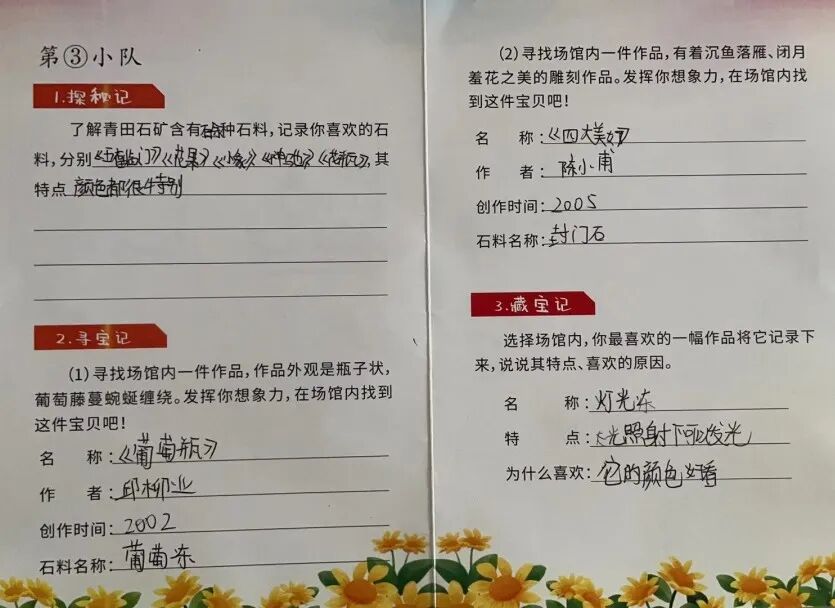 第③小队
1.探秘记
了解青田石矿含有种石料,记录你喜欢的石
料,分别《花果》,其
特点 颜色都很特别
2.寻宝记
(1)寻找场馆内一件作品,作品外观是瓶子状,
葡萄藤蔓蜿蜒缠绕。发挥你想象力,在场馆内找到
这件宝贝吧!
名 称:《葡萄瓶》
作 者:邱柳业
创作时间:2002
石料名称:葡萄冻
(2)寻找场馆内一件作品,有着沉鱼落雁、闭月
羞花之美的雕刻作品。发挥你想象力,在场馆内找
到这件宝贝吧!
名 称:《四大美女》
作 者:陈小甫
创作时间:2005
石料名称:封门石
3.藏宝记
选择场馆内,你最喜欢的一幅作品将它记录下
来,说说其特点、喜欢的原因。
名 称:灯光冻
特 点:光照射下可以发光
为什么喜欢:它的颜色好看